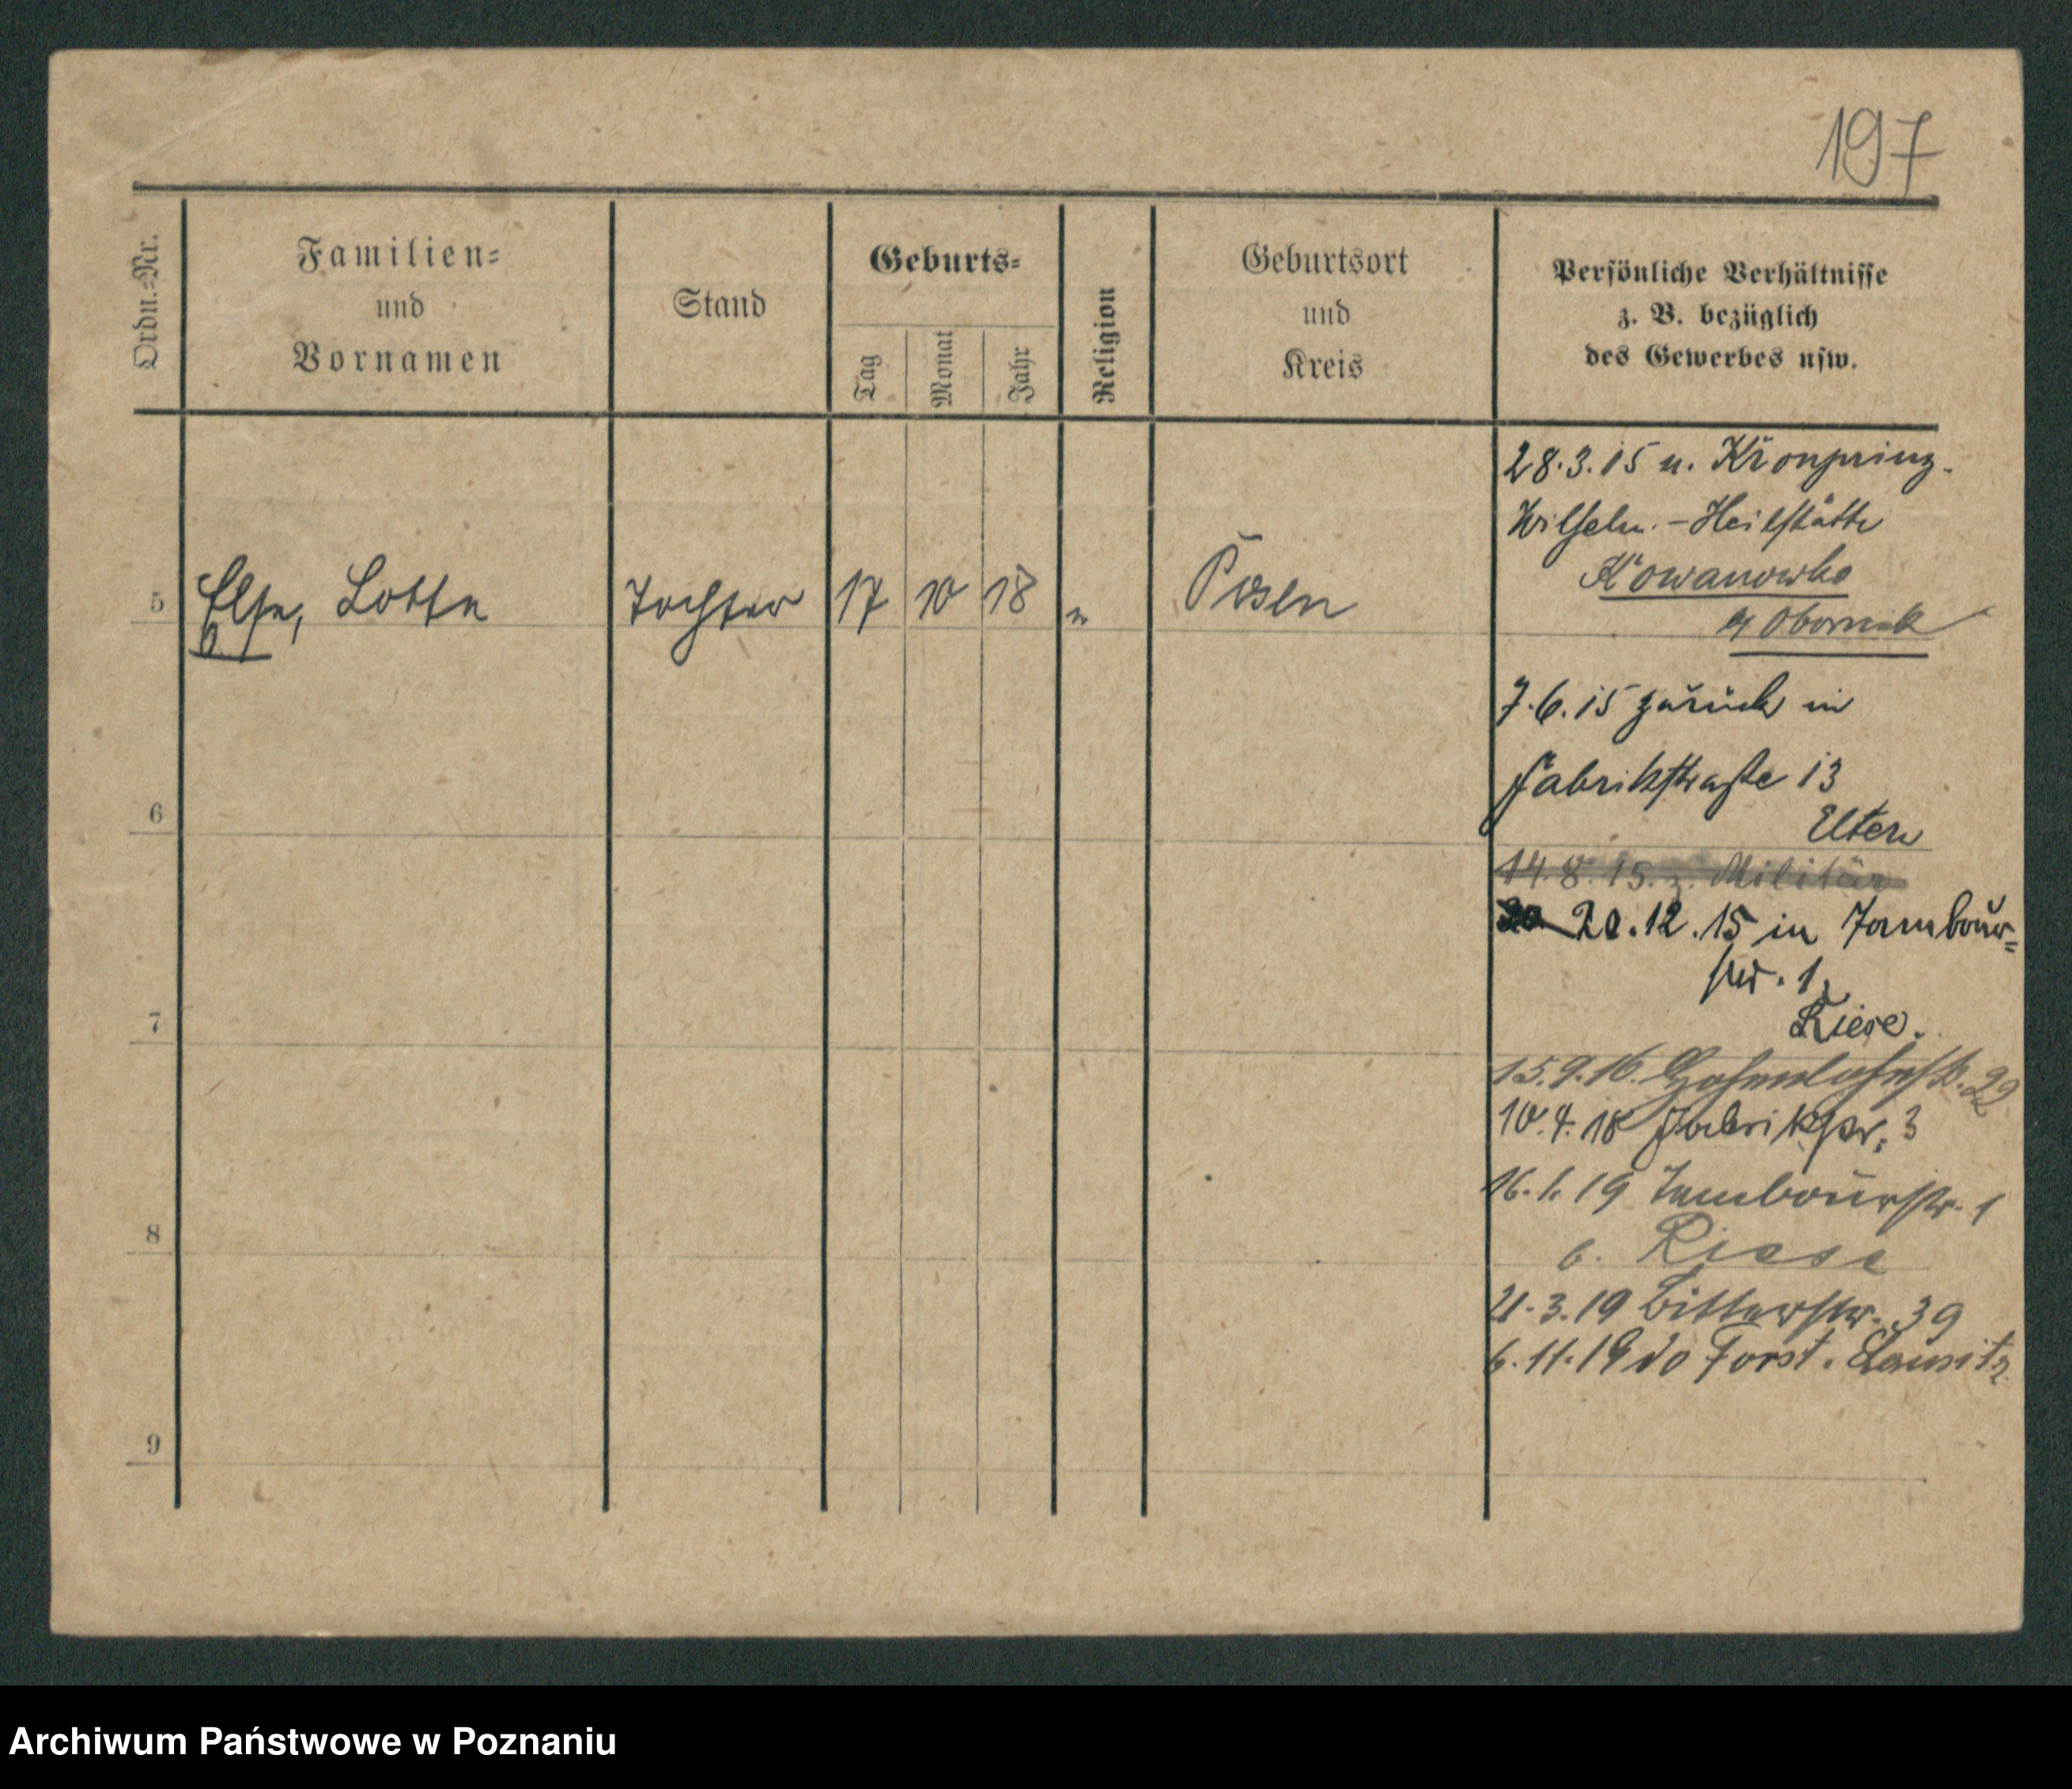 197
Ordn.-Nr.
Familien-
und
Vornamen
Stand
Geburts-
Tag
Monat
Jahr
Religion
Geburtsort
und
Kreis
Persönliche Verhältnisse
z. B. bezüglich
des Gewerbes usw.
5 Else, Lotte Tochter 17 10 18 " Posen
6
7
8
9
28.3.15 n. Kronprinz-
Wilhelm.-Heilstätte
Kowanowko
Obornik
7.6.15 zurück in
Fabrikstraße 13
Eltern
14.8.15. z. Militär
20 20.12.15 in Tambour-
str. 1.
Riese.
15.9.16. Hohenlohestr. 22
10.4.18 Fabrikstr. 3
16.1.19 Tambourstr. 1
b. Riese
21.3.19 Bitterstr. 39
6.11.19 do Forst. Lausitz
Archiwum Państwowe w Poznaniu